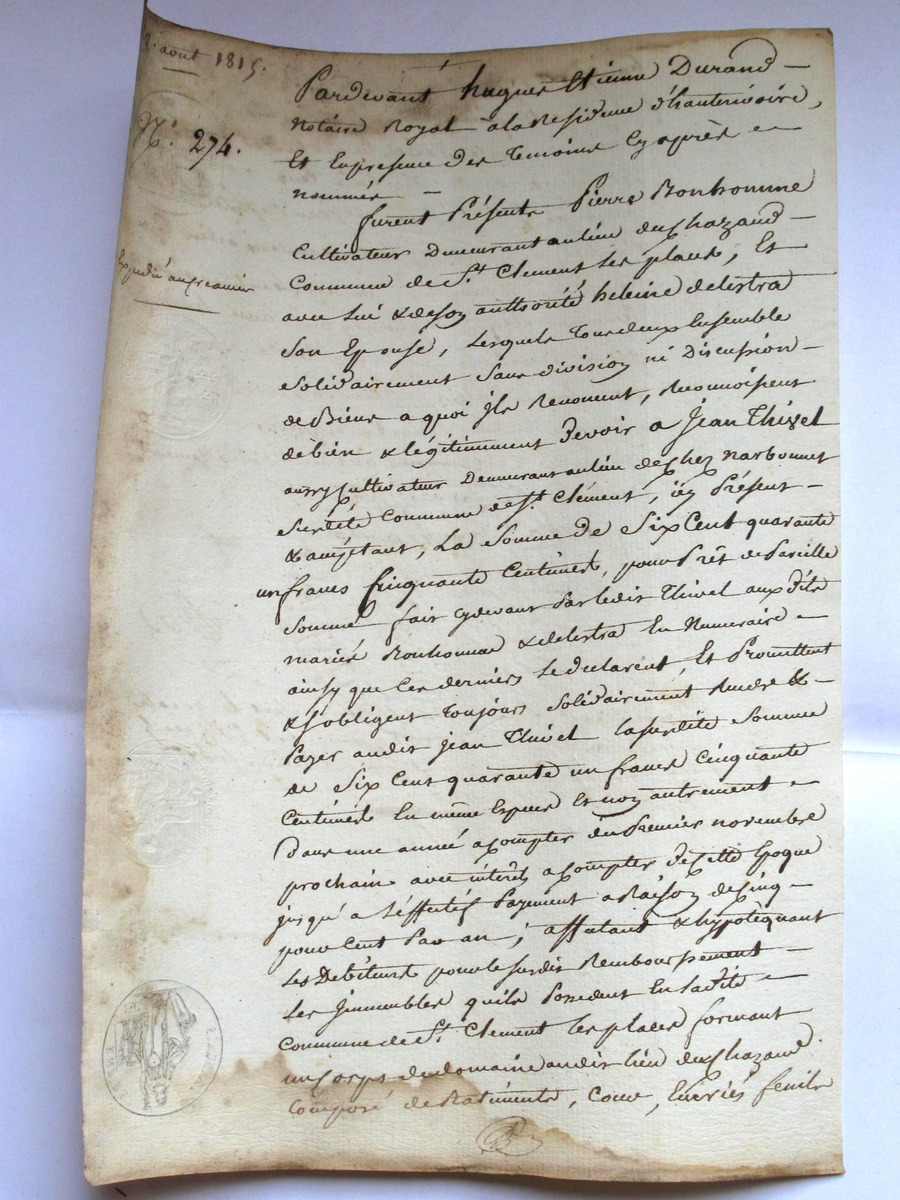 août 1815.
N.° 274.
Expédié au créancier
Pardevant hugues Etienne Durand
Notaire Royal à la Residence d'hauterivoire,
Et En presence des temoins Cy après
nommés
furent Présents Pierre Bonhomme
Cultivateur Demeurant au lieu du Chazaud
Commune de St. Clement les places, Et
avec lui & de son authorité heleine delestra
Son Epouse, lesquels tous deux Ensemble
Solidairement Sans division ni Discussion
de Biens a quoi ils Renoncent, Reconnoissent
de bien & légitimement Devoir a Jean Thivel
aussy Cultivateur Demeurant au lieu de chez Narbonnet
Surdité Commune de St. Clément, icy Présent
& acceptant, La Somme de Six Cent quarante
un francs Cinquante Centimes, pour Prêt de Pareille
Somme fait cydevant Par ledit Thivel aux dits
mariés Bonhomme & delestra En Numeraire
ainsy que Ces derniers le declarent, Et Promettent
& S'obligent toujours Solidairement Rendre &
Payer audit Jean Thivel la Surdite Somme
de Six Cent quarante un francs Cinquante
Centimes En même Espece Et non autrement
Dans une année a Compter du Premier novembre
prochain avec intérêts a Compter de Cette Epoque
jusqu'a l'Effectif Payement a Raison de Cinq
pour Cent Par an; affectant & hypotèquant
Les Débiteurs pour le Surdit Remboursement
Les Immeubles qu'ils Possedent En ladite
Commune de St. Clement les places formant
un Corps de domaine audit lieu du Chazaud
Composé de Batiments, Cour, Ecuries fenils